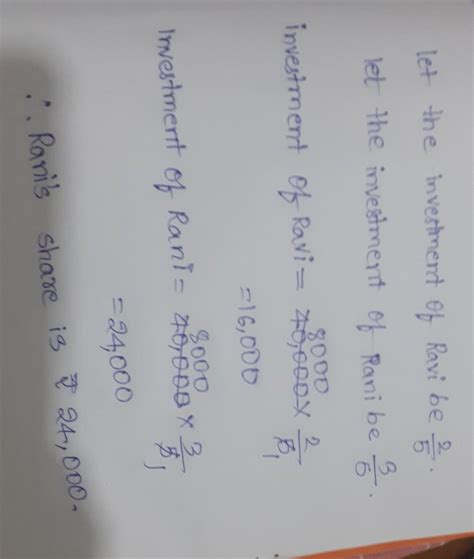 let the investment of Ravi be 2/5.
let the investment of Rani be 3/5.
investment of Ravi = 40,000 8000 × 2/5 1
=16,000
Investment of Rani = 40,000 8000 × 3/5 1
=24,000
∴ Rani's share is ₹ 24,000.